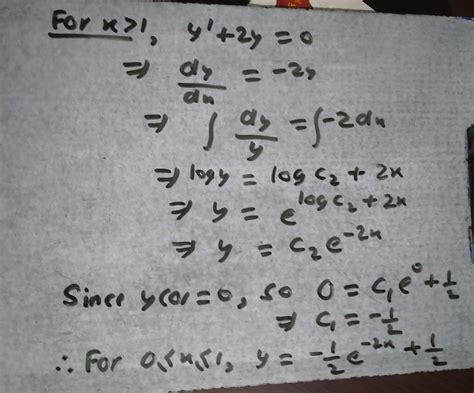 For x>1, y' + 2y = 0
⇒ dy/dx = -2y
⇒ ∫ dy/y = ∫ -2dx
⇒ log y = log c₂ + 2x
⇒ y = e^(log c₂ + 2x)
⇒ y = c₂ e^(-2x)
Since y(0) = 0, so 0 = c₁e⁰ + 1/2
⇒ c₁ = -1/2
∴ For 0≤x≤1, y = -1/2 e^(-2x) + 1/2